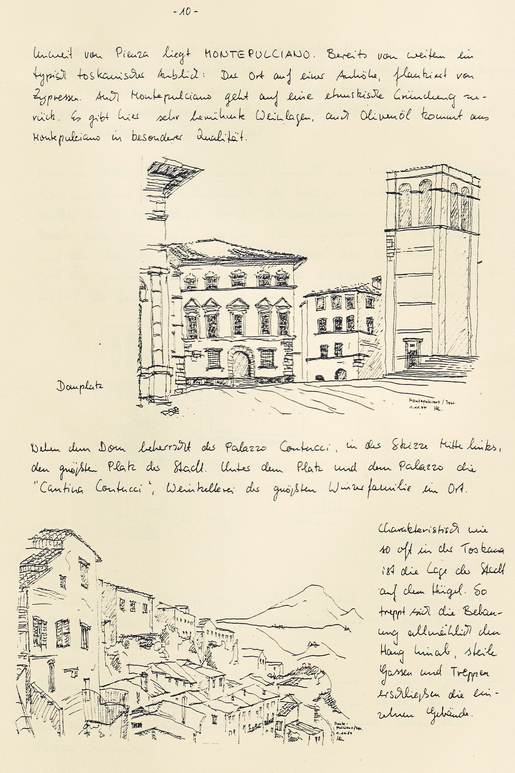 - 10 -
Unweit von Pienza liegt MONTEPULCIANO. Bereits von weitem ein
typisch toskanischer Anblick: Der Ort auf einer Anhöhe, flankiert von
Zypressen. Auch Montepulciano geht auf eine etruskische Gründung zu-
rück. Es gibt hier sehr berühmte Weinlagen, auch Olivenöl kommt aus
Montepulciano in besonderer Qualität.
Domplatz
Montepulciano / Tosc.
Neben dem Dom beherrscht der Palazzo Contucci, in der Skizze Mitte links,
den größten Platz der Stadt. Unter dem Platz und dem Palazzo die
"Cantina Contucci", Weinkellerei der größten Winzerfamilie im Ort.
Charakteristisch wie
so oft in der Toskana
ist die Lage der Stadt
auf dem Hügel. So
treppt sich die Bebau-
ung allmählich den
Hang hinab, steile
Gassen und Treppen
erschließen die ein-
zelnen Gebäude.